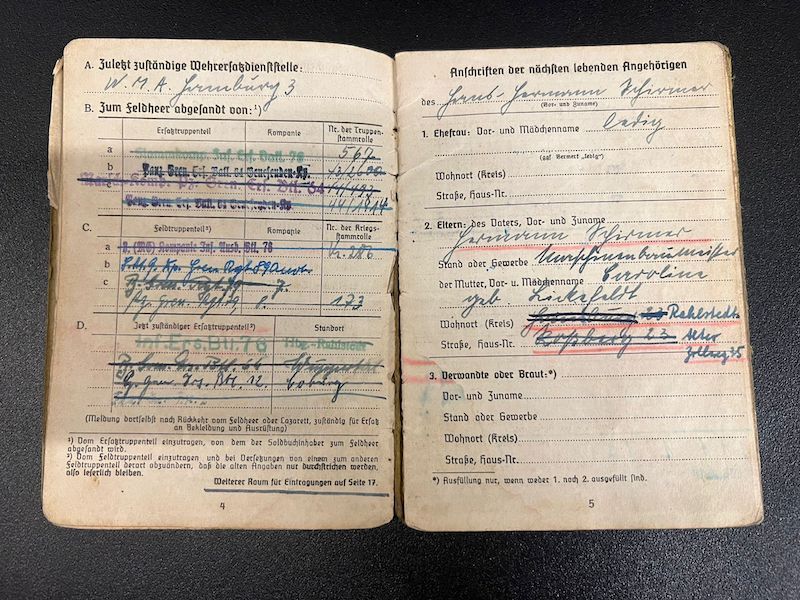 A. Zuletzt zuständige Wehrersatzdienststelle:
W.M.A. Hamburg 3
B. Zum Feldheer abgesandt von:¹)
Ersatztruppenteil Kompanie Nr. der Truppen-stammrolle
a Stammkomp. Inf. Ers. Batl. 76 567
b Panz. Gren. Ers. Batl. 64 Genesenden-Kp.
c Marsch-Komp. Pz. Gren. Ers. Btl. 64
Panz. Gren. Ers. Batl. 64 Genesenden-Kp
C. Feldtruppenteil²) Kompanie Nr. der Kriegs-stammrolle
a Kompanie Inf. 76 286
b Gren. Rgt
c
Gren. Rgt 79 173
D. Jetzt zuständiger Ersatztruppenteil²) Standort
Inf. Ers. Btl. 76 Hbg.-Rahlstedt
Wuppertal
12. Coburg
(Meldung dortselbst nach Rückkehr vom Feldheer oder Lazarett, zuständig für Ersatz
an Bekleidung und Ausrüstung)
¹) Vom Ersatztruppenteil einzutragen, von dem der Soldbuchinhaber zum Feldheer
abgesandt wird.
²) Vom Feldtruppenteil einzutragen und bei Versetzungen von einem zum anderen
Feldtruppenteil derart abzuändern, daß die alten Angaben nur durchstrichen werden,
also leserlich bleiben.
Weiterer Raum für Eintragungen auf Seite 17.
4
Anschriften der nächsten lebenden Angehörigen
des Hans-Hermann Schirmer
(Vor- und Zuname)
1. Ehefrau: Vor- und Mädchenname ledig
(ggf. Vermerk „ledig")
Wohnort (Kreis)
Straße, Haus-Nr.
2. Eltern: des Vaters, Vor- und Zuname
Hermann Schirmer
Stand oder Gewerbe Maschinenbaumeister
der Mutter, Vor- u. Mädchenname Caroline
geb. Lickefeldt
Wohnort (Kreis) Hamburg 23 Rahlstedt
Straße, Haus-Nr. Roßberg 23 Alter
Zollweg 35
3. Verwandte oder Braut:*)
Vor- und Zuname
Stand oder Gewerbe
Wohnort (Kreis)
Straße, Haus-Nr.
*) Ausfüllung nur, wenn weder 1. noch 2. ausgefüllt sind.
5